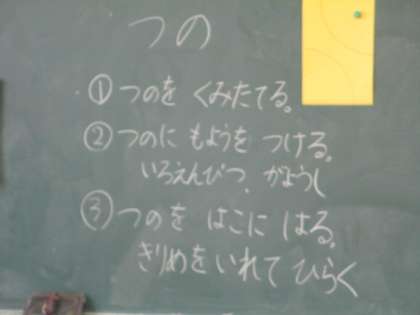 つの
①つのを くみたてる。
②つのに もようを つける。
いろえんぴつ、がようし
③つのを はこに はる。
きりめを いれて ひらく